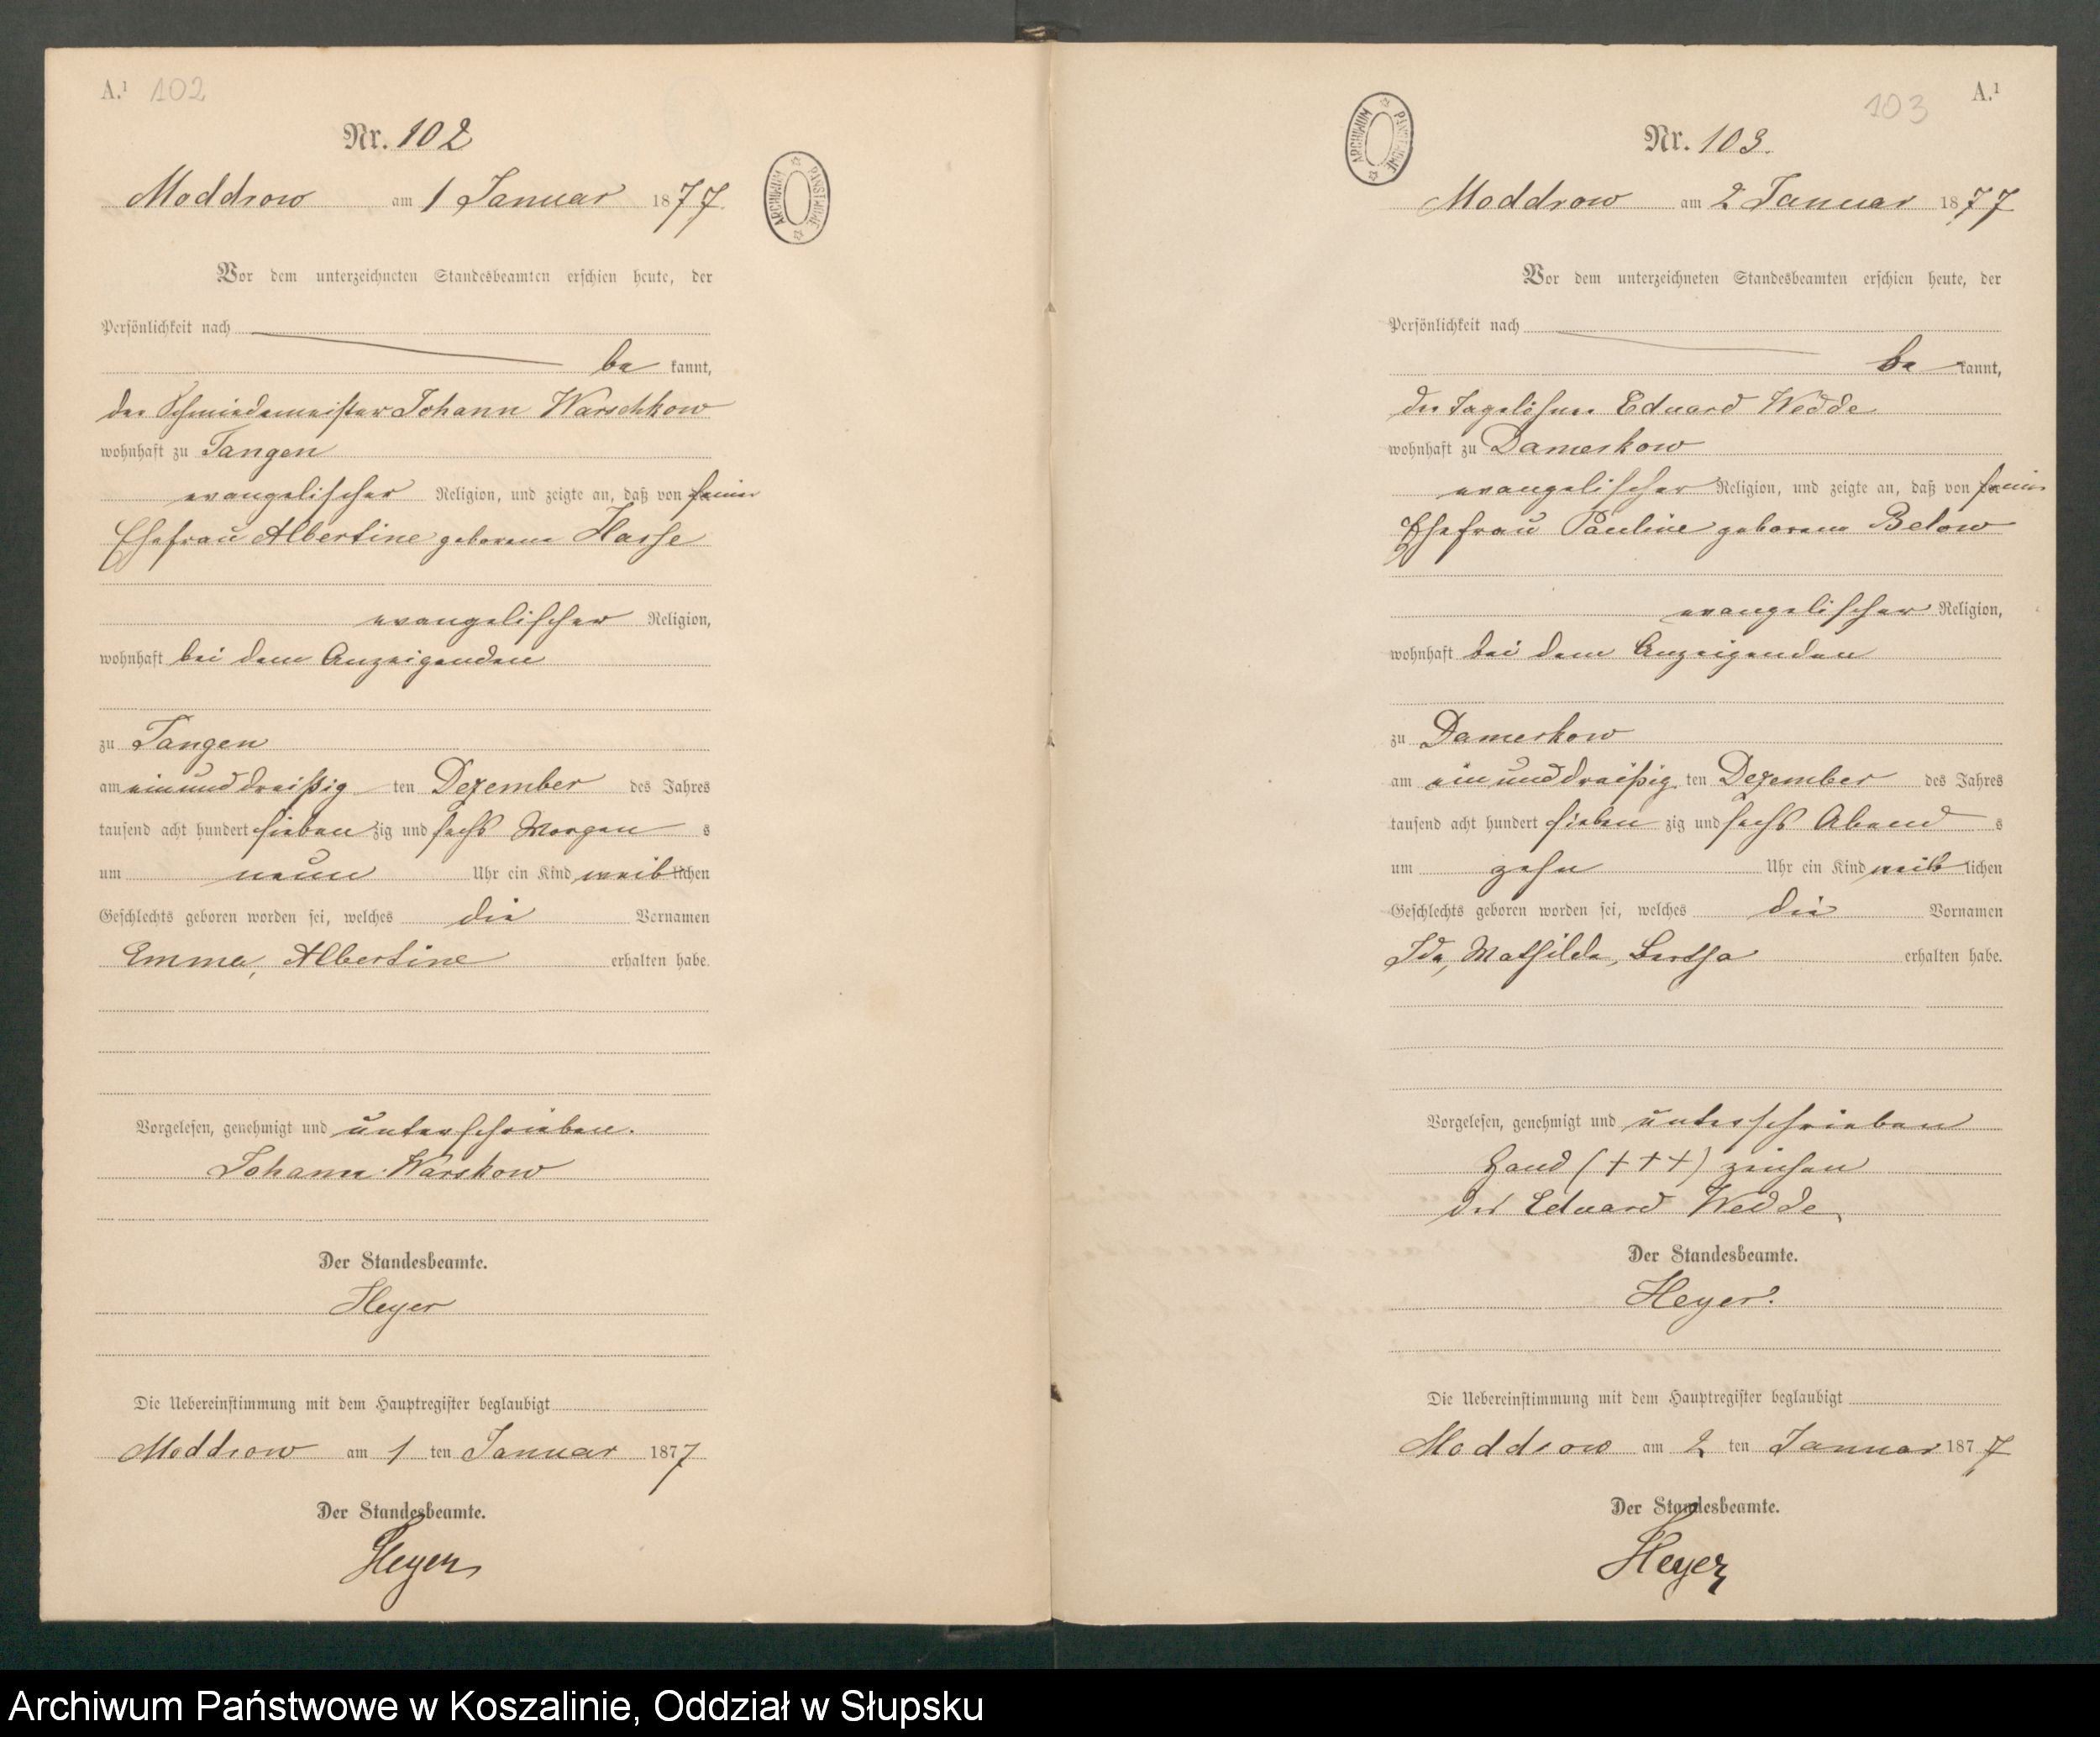 A.¹ 102
Nr. 102
Moddrow am 1 Januar 1877.
ARCHIWUM PAŃSTWOWE
Vor dem unterzeichneten Standesbeamten erschien heute, der
Persönlichkeit nach
be kannt,
der Schmiedemeister Johann Warschkow
wohnhaft zu Tangen
evangelischer Religion, und zeigte an, daß von seiner
Ehefrau Albertine geborene Hasse
evangelischer Religion,
wohnhaft bei dem Anzeigenden
zu Tangen
am einunddreißig ten Dezember des Jahres
tausend acht hundert sieben zig und sechs Morgen s
um neun Uhr ein Kind weib lichen
Geschlechts geboren worden sei, welches die Vornamen
Emma, Albertine erhalten habe.
Vorgelesen, genehmigt und unterschrieben.
Johann Warskow
Der Standesbeamte.
Heyer
Die Uebereinstimmung mit dem Hauptregister beglaubigt
Moddrow am 1 ten Januar 1877
Der Standesbeamte.
Heyer
103 A.¹
Nr. 103.
ARCHIWUM PAŃSTWOWE
Moddrow am 2 Januar 1877
Vor dem unterzeichneten Standesbeamten erschien heute, der
Persönlichkeit nach
be kannt,
der Tagelöhner Eduard Wedde
wohnhaft zu Damerkow
evangelischer Religion, und zeigte an, daß von seiner
Ehefrau Pauline geborene Below
evangelischer Religion,
wohnhaft bei dem Anzeigenden
zu Damerkow
am einunddreißig ten Dezember des Jahres
tausend acht hundert sieben zig und sechs Abend s
um zehn Uhr ein Kind weib lichen
Geschlechts geboren worden sei, welches die Vornamen
Ida, Mathilde, Bertha erhalten habe.
Vorgelesen, genehmigt und unterschrieben
Hand (+++) zeichen
des Eduard Wedde
Der Standesbeamte.
Heyer.
Die Uebereinstimmung mit dem Hauptregister beglaubigt
Moddrow am 2 ten Januar 1877
Der Standesbeamte.
Heyer
Archiwum Państwowe w Koszalinie, Oddział w Słupsku